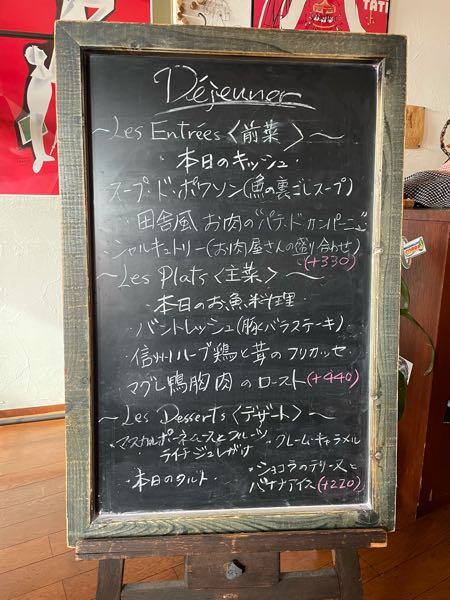 TATI
Déjeuner
~Les Entrées〈前菜〉~
本日のキッシュ・
スープ・ド・ポワソン(魚の裏ごしスープ)
田舎風 お肉の"パテ・ド カンパーニュ"
シャルキュトリー(お肉屋さんの盛り合わせ)
(+330)
~Les Plats〈主菜〉~
・本日のお魚料理
・バントレッシュ(豚バラステーキ)
・信州ハーブ鶏と茸のフリカッセ
・マグレ鴨胸肉のロースト(+440)
~Les Desserts〈デザート〉~
・マスカルポーネムースとフルーツ
ライチジュレがけ
・クレーム・キャラメル
・本日のタルト
・ショコラのテリーヌと
バナナアイス(+220)